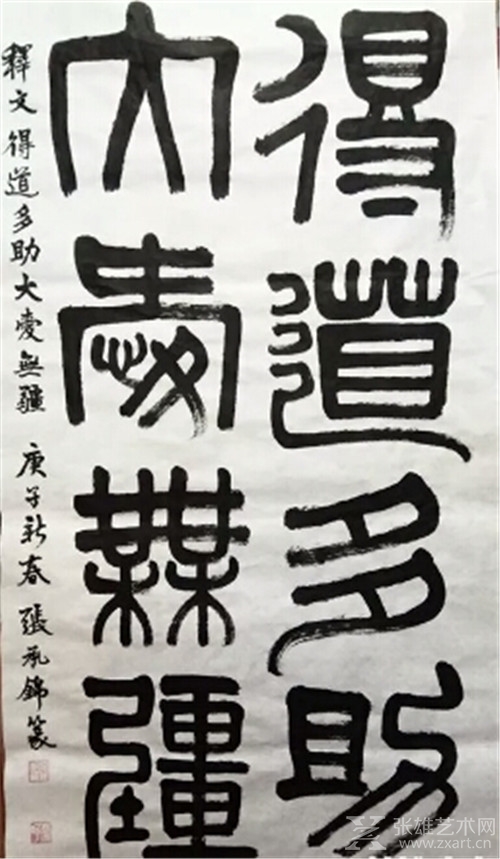 得道多助
大愛無疆
釋文得道多助大愛無疆 庚子新春 張承錦篆
张雄艺术网
www.zxart.cn